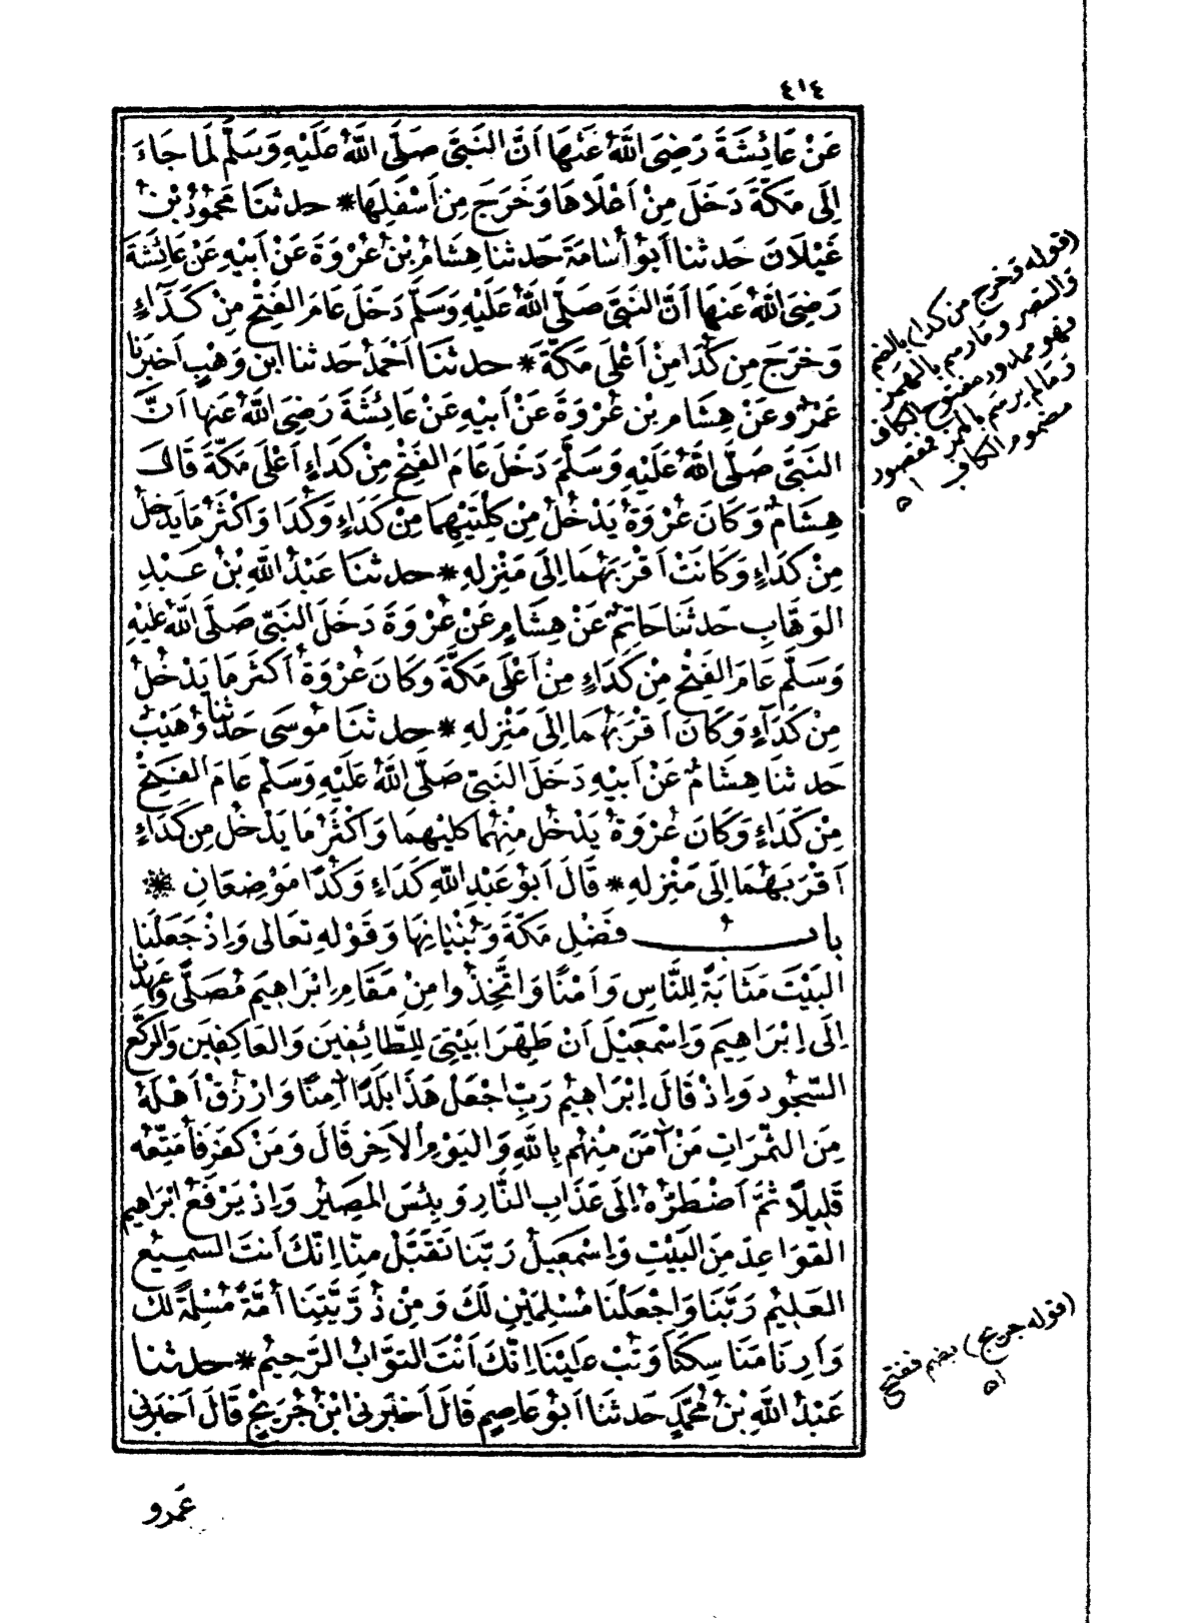 ٤١٤
عَنْ عَائِشَةَ رَضِىَ اللَّهُ عَنْهَا اَنَّ النَّبِىَّ صَلَّى اللَّهُ عَلَيْهِ وَسَلَّمَ لَمَا جَاءَ
اِلَى مَكَّةَ دَخَلَ مِنْ اَعْلَاهَا وَخَرَجَ مِنْ اَسْفَلِهَا * حدثنَا مَحْمُودُ بْنُ
غَيْلَانَ حَدثنا اَبُو أُسَامَةَ حَدثنا هِشَامُ بْنُ عُرْوَةَ عَنْ اَبِيْهِ عَنْ عَائِشَةَ
رَضِىَ اللَّهُ عَنهَا اَنَّ النَّبِىَّ صَلَّى اللَّهُ عَلَيْهِ وَسَلَّمَ دَخَلَ عَامَ الفَتْحِ مِنْ كَدَآءٍ
وَخَرَجَ مِن كُدًا مِنْ اَعْلَى مَكَّةَ * حدثنَا اَحْمَدُ حَدثنا ابن وَهْبٍ اَخبَرنا
عَمْرٌو عَنْ هِشَامِ بْنِ عُرْوَةَ عَنْ اَبيْهِ عَنْ عَائِشَةَ رَضِىَ اللَّهُ عَنهَا اَنَّ
النَبِىَّ صَلَّى اللَّهُ عَلَيْهِ وَسَلَّمَ دَخَلَ عَامَ الفَتْحِ مِنْ كَدَاءٍ اَعْلَى مَكَّةَ قَالَ
هِشَامٌ وَكَانَ عُرْوَةُ يَدْخُلُ مِنْ كِلْتَيْهِمَا مِنْ كَدَاءٍ وَكُدَا وَاَكْثَرُ مَا يَدْخُلُ
مِنْ كَدَاءٍ وَكَانَتْ اَقْرَبَهُمَا اِلَى مَنْزِلهِ * حدثنَا عَبْدُ اللَّهِ بْنُ عَبْدِ
الوَهَّابِ حَدثَنا حَاتِمٌ عَنْ هِشَامٍ عَنْ عُرْوَةَ دَخَلَ النَبِىّ صَلَّى اللَّهُ عَليْهِ
وَسَلَّمَ عَامَ الفَتْحِ مِنْ كَدَاءٍ مِنْ اَعْلَى مَكَّةَ وَكَانَ عُرْوَةُ اَكثَرَ مَا يَدْخُلُ
مِنْ كَدَآءٍ وَكَانَ اَقْرَبَهُمَا اِلَى مَنْزِلهِ * حدثنَا مُوسَى حَدثنا وُهَيْبٌ
حَدثنَا هِشَامٌ عَنْ اَبيْهِ دَخَلَ النَبىّ صَلَّى اللَّهُ عَلَيْهِ وَسَلَّمَ عَامَ الفَتْحِ
مِنْ كَدَاءٍ وَكَانَ عُرْوَةُ يَدْخُل مِنْهُمَا كليْهمَا وَاَكْثَرُ مَا يَدْخُل مِن كَدَاءٍ
اَقْرَبهُمَا اِلَى مَنْزِلهِ * قَالَ اَبُو عَبْدِ اللَّهِ كَدَاءٍ وَكُدًا مَوْضِعَانِ *
بابُ فَضْلِ مَكَّةَ وَبُنْيَانِهَا وَقَوْلِهِ تعَالى وَاِذْ جَعَلْنَا
البَيْتَ مَثَابَةً لِلنَّاسِ وَاَمْنًا وَاتَّخِذُوا مِنْ مَقَامِ اِبْرَاهِيمَ مُصَلًّى وَعَهِدْنَا
اِلَى اِبْرَاهِيمَ وَاِسْمَعِيْلَ اَنْ طَهِّرَا بَيْتِىَ لِلطَّائِفِينَ وَالعَاكِفِينَ وَالرُّكَّعِ
السُّجُودِ وَاِذْ قَالَ اِبْرَاهِيْمُ رَبِّ اجْعَلْ هَذَا بَلَدًا اٰمِنًا وَارْزُقْ اَهْلَهُ
مِنَ الثَّمَرَاتِ مَنْ اٰمَنَ مِنْهُمْ بِاللَّهِ وَاليَوْمِ الاَخِرِ قَالَ وَمَنْ كَفَرَ فَأُمَتِّعُه
قَلِيلًا ثُمَّ اَضْطَرُّهُ اِلَى عَذَابِ النَّارِ وَبِئْسَ المَصِيْرُ وَاِذْ يَرْفَعُ ابْرَاهِيم
القَوَاعِدَ مِنَ البَيْتِ وَاِسْمَعِيلُ رَبَّنَا تَقَبَّلْ مِنَّا اِنَّكَ اَنتَ السَّمِيْعُ
العَلِيْمُ رَبَّنَا وَاجْعَلْنَا مُسْلِمَيْنِ لَكَ وَمِنْ ذُرِّيَّتِنَا اُمَّةً مُسْلِمَةً لَكَ
وَاَرِنَا مَنَا سِكَنَا وَتُبْ عَلَيْنَا اِنَّكَ اَنْتَ التوَّابُ الرَّحِيْمُ * حدثنا
عَبْدُ اللَّهِ بْنُ مُحَمَّدٍ حَدثنَا اَبُو عَاصِمٍ قَالَ اَخبَرنى ابْنُ جُرَيْجٍ قَالَ اَخبَرَنى
عَمْرو
(قوله وَخرج من كدا) بالضم
وَالقصر وما رسم بالهمز
فهو ممدود مفتوح الكاف
وَمالم يرسَم بالهمز فمقصور
مضموم الكاف
اه
(قوله جريج) بضم ففتح
اه